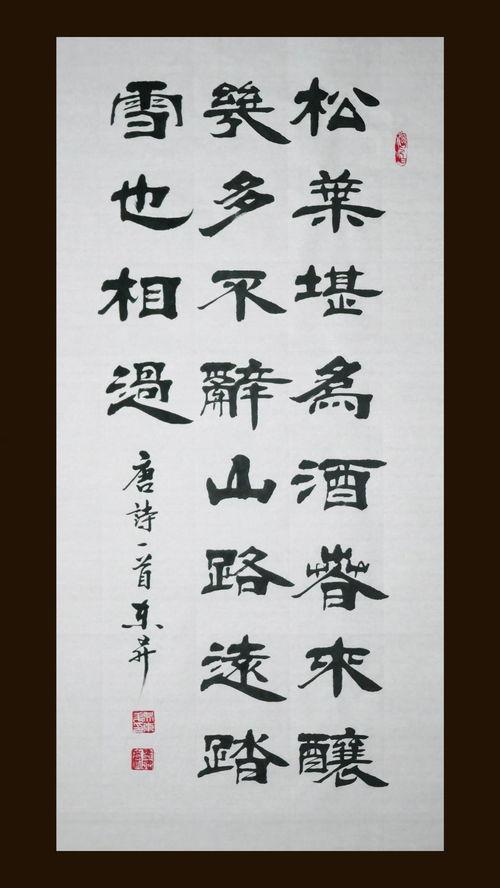 松葉堪為酒春來釀
幾多不辭山路遠踏
雪也相過
唐詩一首東昇